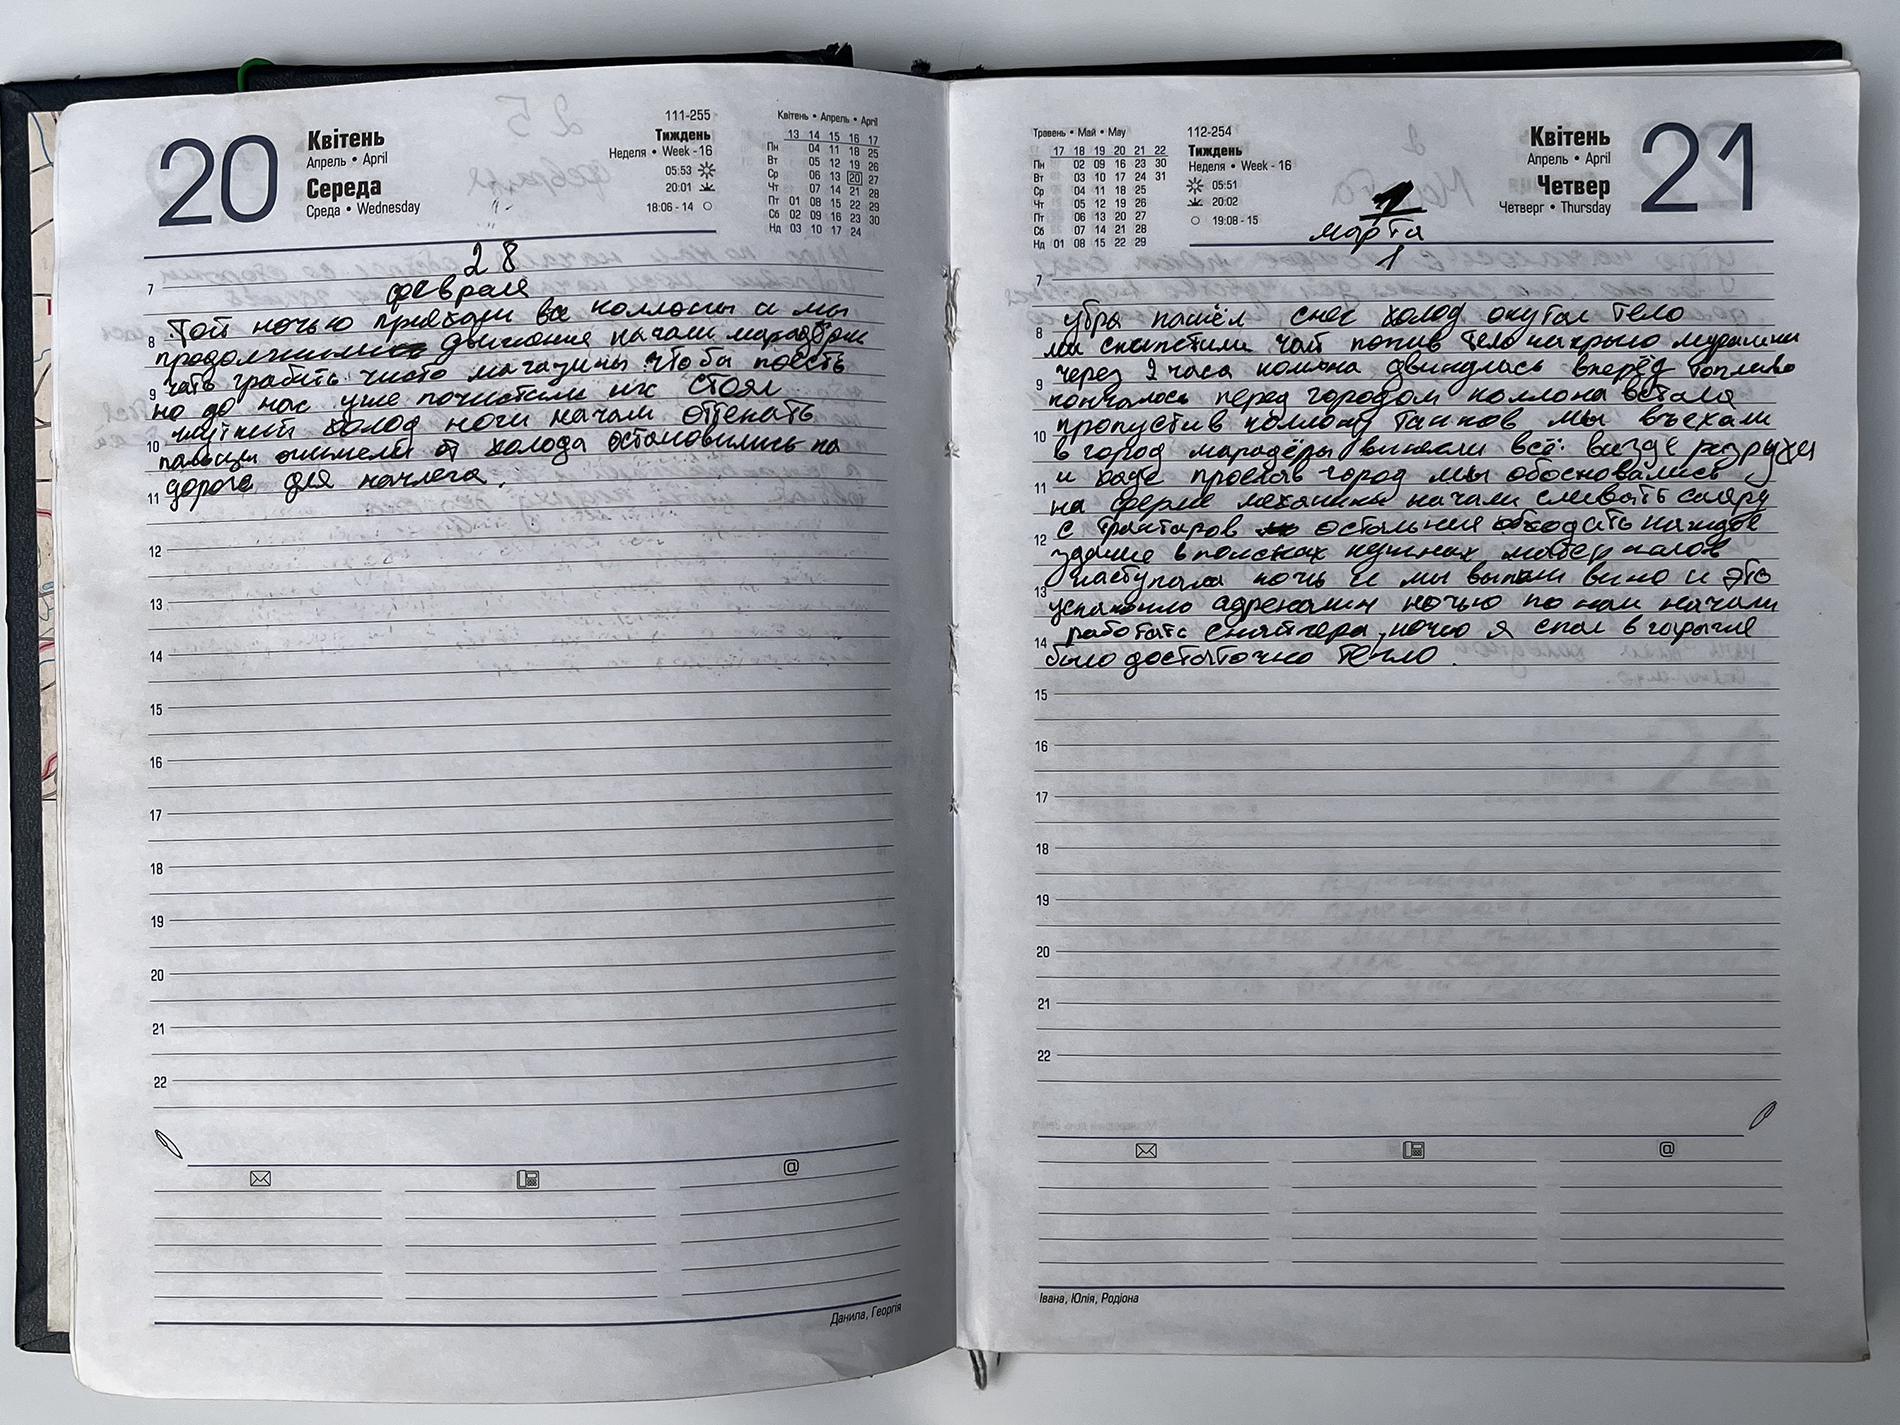 20
Квітень
Апрель • April
Середа
Среда • Wednesday
111-255
Тиждень
Неделя • Week - 16
05:53
20:01
18:06 - 14
Квітень • Апрель • April
13 14 15 16 17
Пн 04 11 18 25
Вт 05 12 19 26
Ср 06 13 20 27
Чт 07 14 21 28
Пт 01 08 15 22 29
Сб 02 09 16 23 30
Нд 03 10 17 24
28
февраля
Той ночью приехали все коллоны и мы
продолжили движение начали мародёрн
чать грабить чисто магазины чтобы поесть
но до нас уже почистили их стоял
жуткий холод ноги начали отекать
пальцы онимели от холода остановились на
дороге для начлега.
7
8
9
10
11
12
13
14
15
16
17
18
19
20
21
22
@
Данила, Георгія
Травень • Май • May
17 18 19 20 21 22
Пн 02 09 16 23 30
Вт 03 10 17 24 31
Ср 04 11 18 25
Чт 05 12 19 26
Пт 06 13 20 27
Сб 07 14 21 28
Нд 01 08 15 22 29
112-254
Тиждень
Неделя • Week - 16
05:51
20:02
19:08 - 15
Квітень
Апрель • April
Четвер
Четверг • Thursday
21
марта
1
утра пошёл снег холод окутал тело
мы скипетили чай попив тело накрыло мурашки
через 2 часа колона двинулась вперёд топливо
кончалось перед городом коллона встала
пропустив коллону танков мы въехали
в город марадёры вынесли всё везде разруха
и проехав город мы обосновались
на ферме механики начали сливать саляру
с тракторов остальные обходить каждое
здание в поисках нужных материалов
наступала ночь и мы выпили вино и это
успакоило адреналин ночью по нам начали
работать снайпера, ночью я спал в
было достаточно тепло.
7
8
9
10
11
12
13
14
15
16
17
18
19
20
21
22
@
Івана, Юлія, Родіона